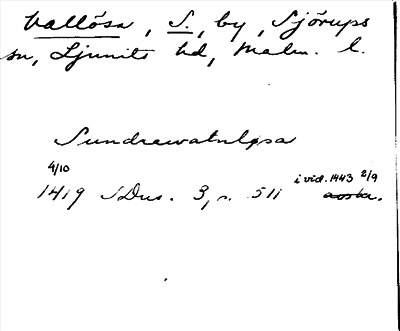 Vallösa, S., by, Sjörups
sn, Ljunits hd, Malm. l.
Sundrewatnløsa
4/10 i vid. 1443 2/9
1419 SDns. 3, s. 511 avskr.